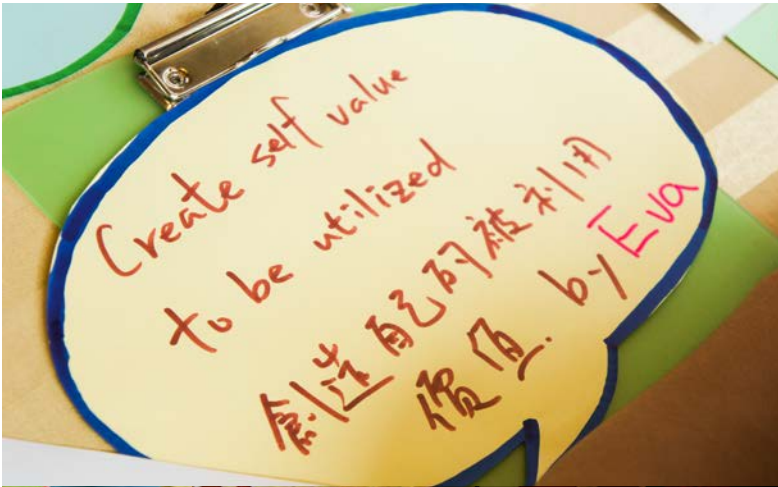 Create self value
to be utilized
創造自己的被利用
價值. by Eva